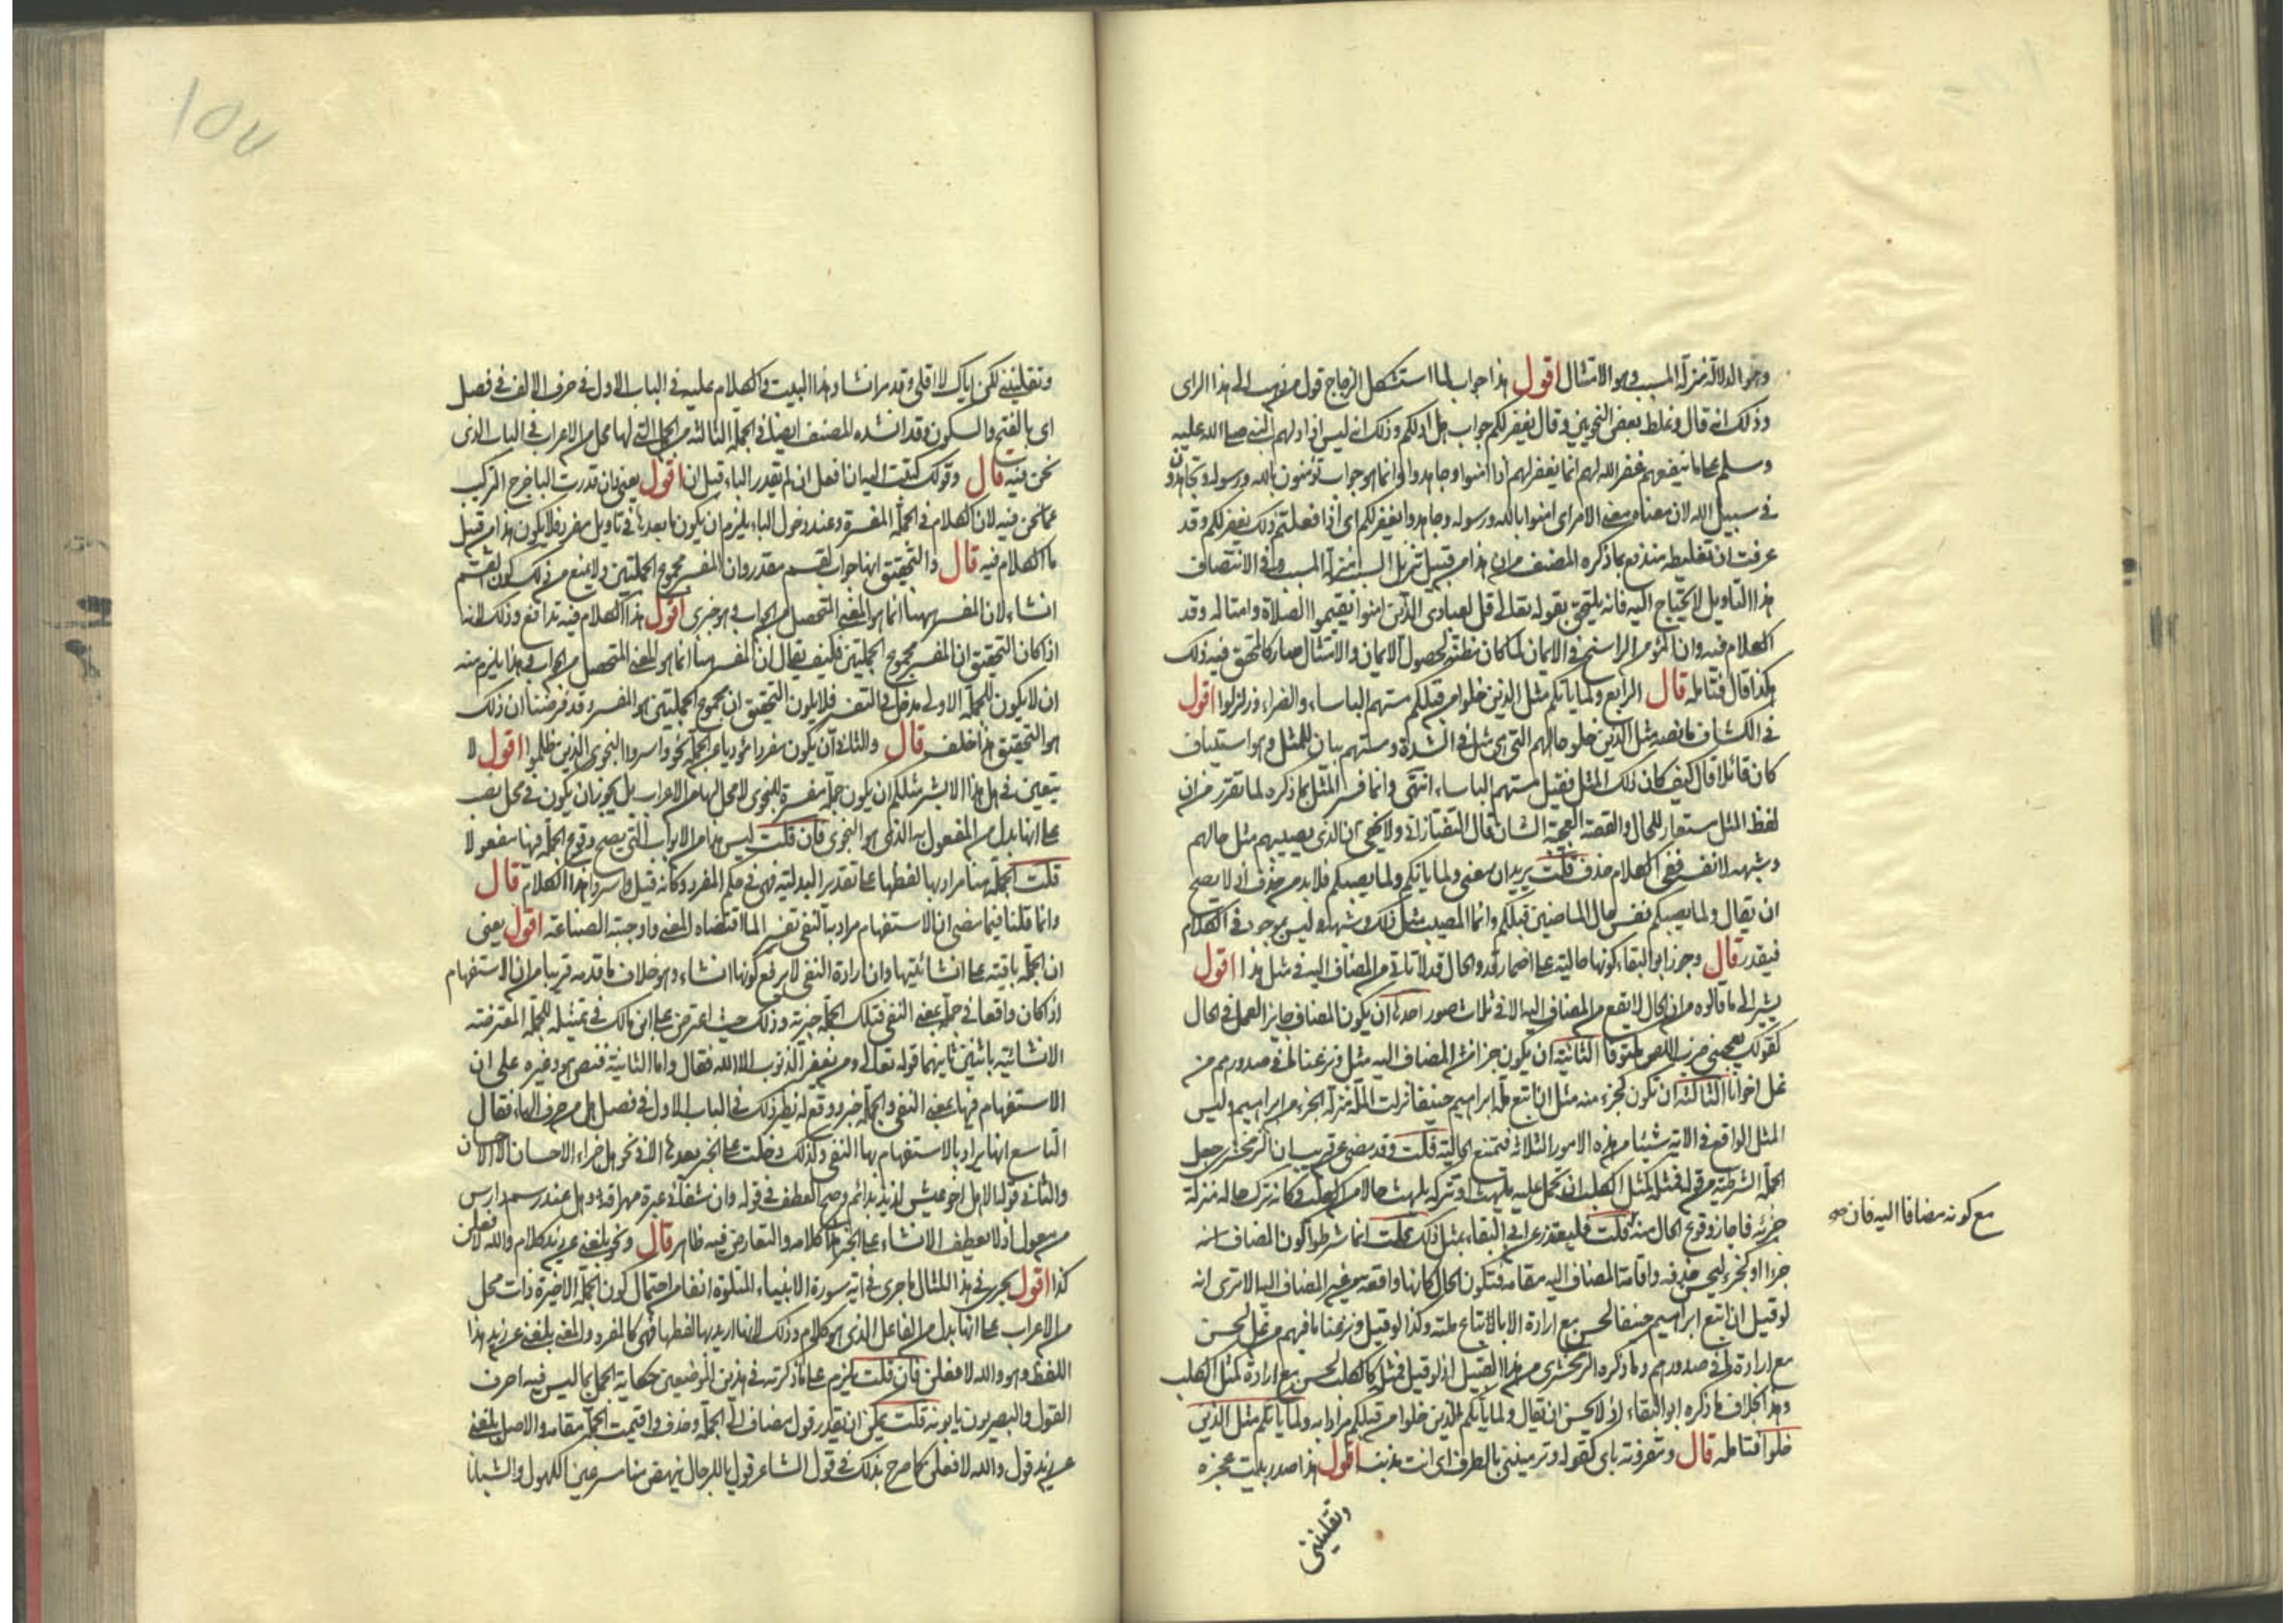 وهو الدلالة منزلة المسبب وهو الامتثال اقول هذا جواب لما استشكل الزجاج قول من ذهب الى هذا الراى
وذلك انه قال وغلط بعض النحويين وقال يغفر لكم جواب هل ادلكم وذلك انه ليس اذا دلهم النبي صلى الله عليه
وسلم على ما ينفعهم غفر الله لهم انما يغفر لهم اذا امنوا وجاهدوا وانما هو جواب تؤمنون بالله ورسوله وتجاهدون
في سبيل الله لان معناه معنى الامر اى امنوا بالله ورسوله وجاهدوا يغفر لكم اى اذا فعلتم ذلك يغفر لكم وقد
عرفت ان تغليطه مندفع بما ذكره المصنف من ان هذا من قبيل تنزيل السبب منزلة المسبب وفي الانتصاف
هذا التاويل لا يحتاج اليه فانه يلتحق بقوله تعالى قل لعبادى الذين امنوا يقيموا الصلاة وامثاله وقد
الكلام فيه وان المؤمن الراسخ في الايمان لما كان مظنة لحصول الايمان والامتثال صار كالمحقق فيه ذلك
هكذا قال فتامله قال الرابع ولما ياتكم مثل الذين خلوا من قبلكم مستهم الباساء والضراء وزلزلوا اقول
في الكشاف ما نصه مثل الذين خلوا حالهم التي هي مثل في الشدة ومستهم بيان للمثل وهو استيناف
كان قائلا قال كيف كان ذلك المثل فقيل مستهم الباساء انتهى وانما فسر المثل بما ذكره لما تقرر من ان
لفظ المثل مستعار للحال والقصة العجيبة الشان قال التفتازاني ولا يخفى ان الذى يصيبهم مثل حالهم
وشبهه لا نفسه ففي الكلام حذف قلت يريد ان معنى ولما ياتكم ولما يصبكم فلا بد من حذف اذ لا يصح
ان يقال ولما يصبكم نفس حال الماضين قبلكم وانما المصيب مثل ذلك وشبهه وليس بموجود في الكلام
فيقدر قال وجوز ابو البقاء كونها حالية على اضمار قد والحال قد لا تاتي من المضاف اليه في مثل هذا اقول
يشير الى ما قالوه من ان الحال لا يقع من المضاف اليه الا في ثلاث صور احدها ان يكون المضاف جايز العمل في الحال
كقولك يعجبني ضرب اللص موثوقا الثانية ان يكون جزا من المضاف اليه مثل ونزعنا ما في صدورهم من
غل اخوانا الثالثة ان تكون كجزء منه مثل ان اتبع ملة ابراهيم حنيفا نزلت الملة منزلة الجزء من ابراهيم وليس
المثل الواقع في الاية شيئا من هذه الامور الثلاثة فتمتنع الحالية قلت وقد مضى عن قريب ان الزمخشرى جعل
الجملة الشرطية من قوله فمثله كمثل الكلب ان تحمل عليه يلهث او تتركه يلهث حالا من الكلب وكانه ترك حاله منزلة
جزئه فاجاز وقوع الحال منه قلت فليعتذر عن ابي البقاء بمثل ذلك قلت انما شرطوا كون المضاف
مع كونه مضافا اليه فان صح
جزءا او كجزء ليحسن حذفه واقامة المضاف اليه مقامه فتكون الحال كانها واقعة من غير المضاف اليه الا ترى انه
لو قيل ان اتبع ابراهيم حنيفا لحسن مع ارادة الا بالاتباع ملته وكذا لو قيل ونزعنا ما فيهم من غل لحسن
مع ارادة ما في صدورهم وما ذكره الزمخشرى من هذا القبيل اذ لو قيل فمثله كالكلب لحسن مع ارادة كمثل الكلب
وهذا بخلاف ما ذكره ابو البقاء اذ لا يحسن ان يقال ولما ياتكم الذين خلوا من قبلكم مرادا به ولما ياتكم مثل الذين
خلوا فتامله قال وشعرونه باى كقوله وترمينني بالطرف اى انت مذنب اقول هذا صدر بيت عجزه
وتقلينني
وتقلينني لكن اياك لا اقلي وقد مر انشاد هذا البيت والكلام عليه في الباب الاول في حرف الالف في فصل
اى بالفتح والسكون وقد انشده المصنف ايضا في الجملة الثالثة من الجمل التي لها محل من الاعراب في الباب الذى
نحن فيه قال وقولك كتبت اليه ان افعل ان لم تقدر الباء قبل ان اقول يعني فان قدرت الباء خرج التركيب
عما نحن فيه لان الكلام في الجملة المفسرة وعند دخول الباء يلزم ان يكون ما بعدها في تاويل مفرد فلا يكون هذا من قبيل
ما الكلام فيه قال والتحقيق انها جواب لقسم مقدر وان المفسر مجموع الجملتين ولا يمنع من ذلك كون القسم
انشاء لان المفسر ههنا انما هو المعنى المتحصل من الجواب وهو خبرى اقول هذا الكلام فيه تدافع وذلك لانه
اذا كان التحقيق ان المفسر مجموع الجملتين فكيف يقال ان المفسر هنا انما هو المعنى المتحصل من الجواب هذا يلزم منه
ان لا يكون للجملة الاولى مدخل في التفسير فلا يكون التحقيق ان مجموع الجملتين هو المفسر وقد فرضنا ان ذلك
هو التحقيق هذا خلف قال والثاني ان يكون مفردا مؤديا معنى الجملة نحو واسروا النجوى الذين ظلموا اقول لا
يتعين في هل هذا الا بشر مثلكم ان يكون جملة مفسرة للنجوى لا محل لها من الاعراب بل يجوز ان يكون في محل نصب
على انها بدل من المفعول به الذى هو النجوى فان قلت ليس هذا من الابواب التي يصح وقوع الجملة فيها مفعولا
قلت الجملة هنا مراد بها لفظها على تقدير البدلية فهي في حكم المفرد وكانه قيل واسروا هذا الكلام قال
وانما قلنا فيما مضى ان الاستفهام مراد به النفي تفسيرا لما اقتضاه المعنى واوجبته الصناعة اقول يعني
ان الجملة باقية على انشائيتها وان ارادة النفي لا يرفع كونها انشاء وهو خلاف ما قدمه قريبا من ان الاستفهام
اذا كان واقعا في جملة بمعنى النفي فتلك الجملة خبرية وذلك حيث اعترض على ابن مالك في تمثيله للجملة المعترضة
الانشائية باثنين ثانيهما قوله تعالى ومن يغفر الذنوب الا الله فقال واما الثانية فنص هو وغيره على ان
الاستفهام فيها بمعنى النفي والجملة خبر ووقع له نظير ذلك في الباب الاول في فصل هل من حرف الهاء فقال
التاسع انها يراد بالاستفهام بها النفي ولذلك دخلت على الخبر بعدها الا في نحو هل جزاء الاحسان الا الاحسان
والثاني قوله الا هل اخو عيش لذيذ بدائم وصح العطف في قوله وان شفائي عبرة مهراقة وهل عند رسم دارس
من معول اذ لا يعطف الانشاء على الخبر هذا كلامه والتعارض فيه ظاهر قال ونحو بلغني عن زيد كلام والله لافعلن
كذا اقول يجرى في هذا المثال ما جرى في اية سورة الانبياء المتلوة انفا من احتمال كون الجملة الاخيرة ذات محل
من الاعراب على انها بدل من الفاعل الذى هو كلام وذلك لانها اريد بها لفظها فهي كالمفرد والمعنى بلغني عن زيد هذا
اللفظ وهو والله لافعلن فان قلت يلزم على ما ذكرته في هذين الموضعين حكاية الجمل بما ليس فيه احرف
القول والبصريون يابونه قلت يمكن ان يقدر قول مضاف الى الجملة وحذف واقيمت الجملة مقامه والاصل بلغني
عن زيد قول والله لافعلن كما صرح بذلك في قول الشاعر قول يا للرجال ينهض منا مسرعين الكهول والشبانا